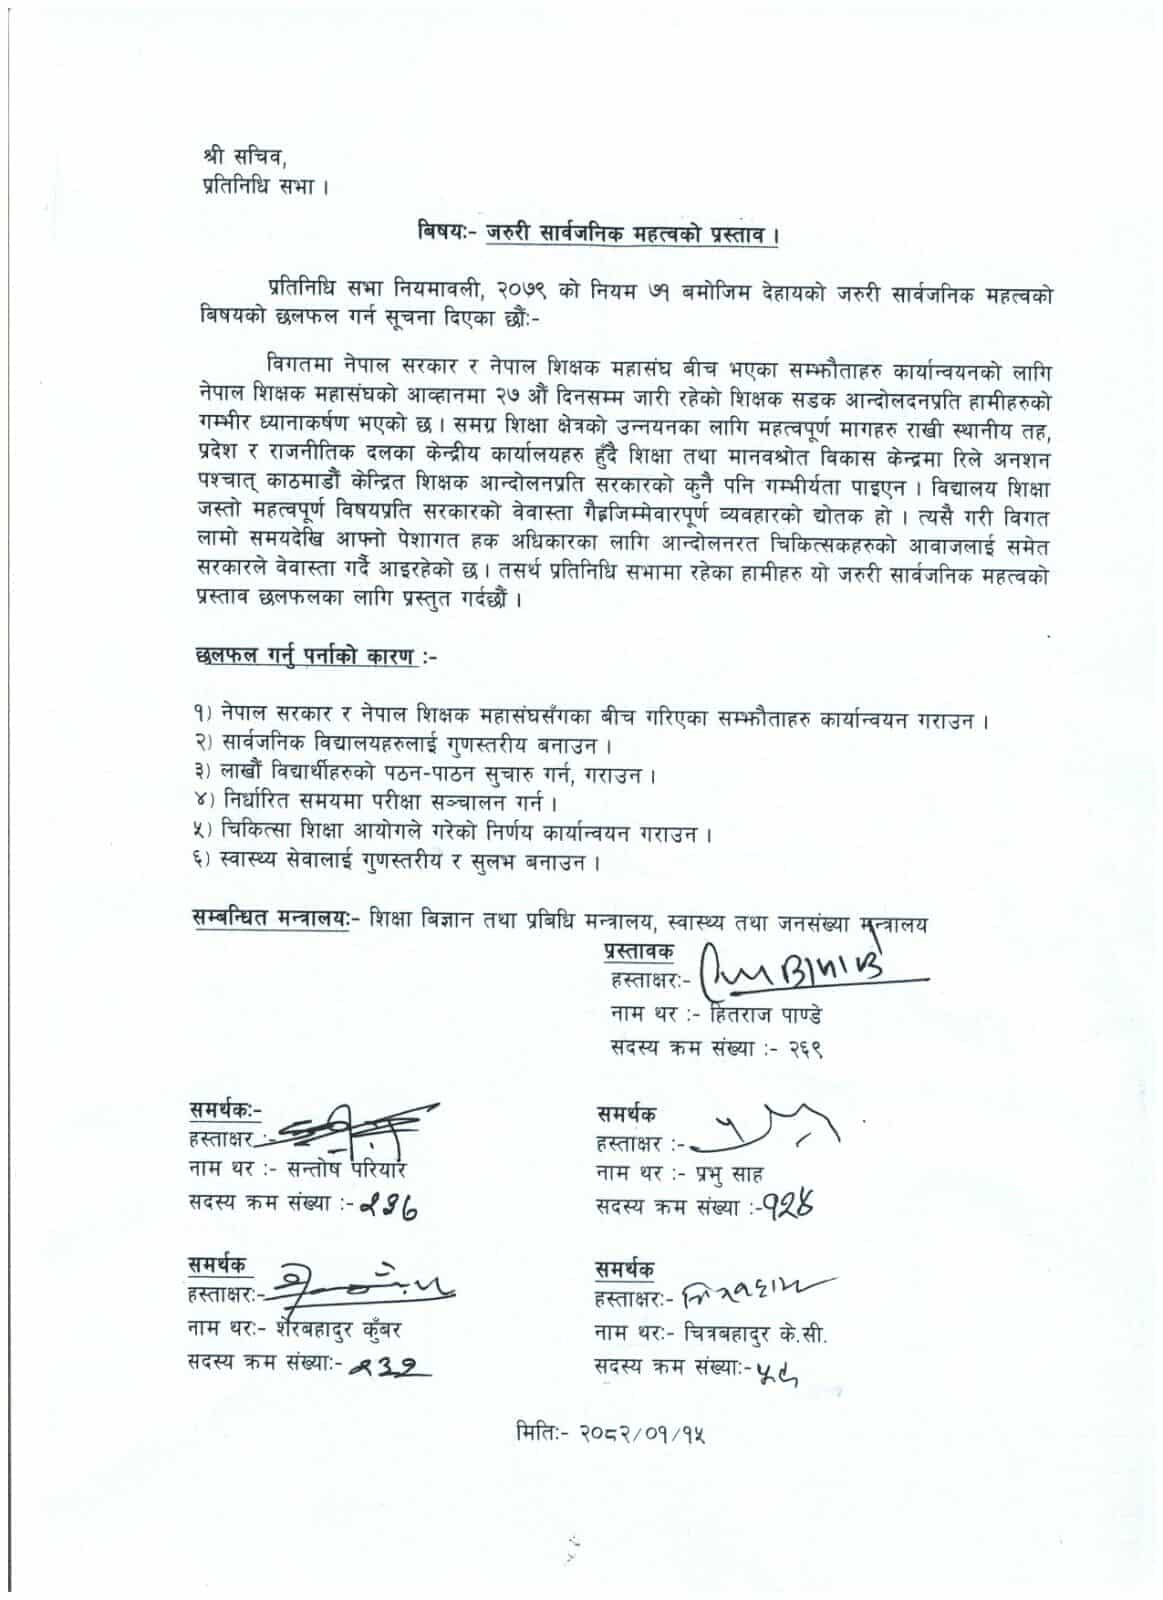 श्री सचिव,
प्रतिनिधि सभा ।
बिषयः- जरुरी सार्वजनिक महत्वको प्रस्ताव ।
प्रतिनिधि सभा नियमावली, २०७९ को नियम ७१ बमोजिम देहायको जरुरी सार्वजनिक महत्वको
बिषयको छलफल गर्न सूचना दिएका छौंः-
विगतमा नेपाल सरकार र नेपाल शिक्षक महासंघ बीच भएका सम्झौताहरु कार्यान्वयनको लागि
नेपाल शिक्षक महासंघको आव्हानमा २७ औं दिनसम्म जारी रहेको शिक्षक सडक आन्दोलदनप्रति हामीहरुको
गम्भीर ध्यानाकर्षण भएको छ । समग्र शिक्षा क्षेत्रको उन्नयनका लागि महत्वपूर्ण मागहरु राखी स्थानीय तह,
प्रदेश र राजनीतिक दलका केन्द्रीय कार्यालयहरु हुँदै शिक्षा तथा मानवश्रोत विकास केन्द्रमा रिले अनशन
पश्चात् काठमाडौं केन्द्रित शिक्षक आन्दोलनप्रति सरकारको कुनै पनि गम्भीर्यता पाइएन । विद्यालय शिक्षा
जस्तो महत्वपूर्ण विषयप्रति सरकारको वेवास्ता गैह्रजिम्मेवारपूर्ण व्यवहारको द्योतक हो । त्यसै गरी विगत
लामो समयदेखि आफ्नो पेशागत हक अधिकारका लागि आन्दोलनरत चिकित्सकहरुको आवाजलाई समेत
सरकारले वेवास्ता गर्दै आइरहेको छ । तसर्थ प्रतिनिधि सभामा रहेका हामीहरु यो जरुरी सार्वजनिक महत्वको
प्रस्ताव छलफलका लागि प्रस्तुत गर्दछौं ।
छलफल गर्नु पर्नाको कारण :-
१) नेपाल सरकार र नेपाल शिक्षक महासंघसँगका बीच गरिएका सम्झौताहरु कार्यान्वयन गराउन ।
२) सार्वजनिक विद्यालयहरुलाई गुणस्तरीय बनाउन ।
३) लाखौं विद्यार्थीहरुको पठन-पाठन सुचारु गर्न, गराउन ।
४) निर्धारित समयमा परीक्षा सञ्चालन गर्न ।
५) चिकित्सा शिक्षा आयोगले गरेको निर्णय कार्यान्वयन गराउन ।
६) स्वास्थ्य सेवालाई गुणस्तरीय र सुलभ बनाउन ।
सम्बन्धित मन्त्रालयः- शिक्षा बिज्ञान तथा प्रबिधि मन्त्रालय, स्वास्थ्य तथा जनसंख्या मन्त्रालय
प्रस्तावक
हस्ताक्षरः-
नाम थर :- हितराज पाण्डे
सदस्य क्रम संख्या :- २६९
समर्थकः- समर्थक
हस्ताक्षर :- हस्ताक्षर :-
नाम थर :- सन्तोष परियार नाम थर :- प्रभु साह
सदस्य क्रम संख्या :- २३६ सदस्य क्रम संख्या :-१२४
समर्थक समर्थक
हस्ताक्षरः- हस्ताक्षरः- चित्रबहादुर
नाम थरः- शेरबहादुर कुँबर नाम थरः- चित्रबहादुर के.सी.
सदस्य क्रम संख्याः- २३२ सदस्य क्रम संख्याः-
मितिः- २०८२/०१/१५